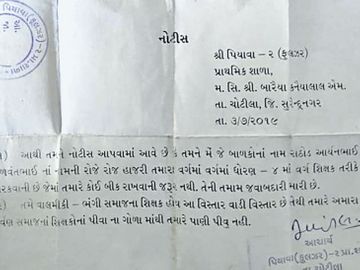 નોટીસ
શ્રી પિયાવા - ૨ (ફુલઝર)
પ્રાથમિક શાળા,
મ. સિ. શ્રી. બારૈયા કનૈયાલાલ એમ.
તા. ચોટીલા, જિ. સુરેન્દ્રનગર
તા. 3/૭/૨૦૧૯
આથી તમને નોટીસ આપવામાં આવે છે કે તમને મેં જે બાળકોનાં નામ રાઠોડ આર્યનભાઈ
નાં નામની રોજે રોજ હાજરી તમારા વર્ગમાં વર્ગમાં ધોરણ - ૪ માં વર્ગ શિક્ષક તરીકે
છે જેમાં તમારે કોઈ બીક રાખવાની જરૂર નથી. તેની તમામ જવાબદારી મારી છે.
તમે વાલ્મીકી - ભંગી સમાજના શિક્ષક હોય આ વિસ્તાર વાડી વિસ્તાર છે તેથી તમારે અમારા
સમાજનાં શિક્ષકોનાં પીવા ના ગોળા માંથી તમારે પાણી પીવુ નહી.
આચાર્ય
પિયાવા(ફુલઝર)-૨
તા ચોટીલા